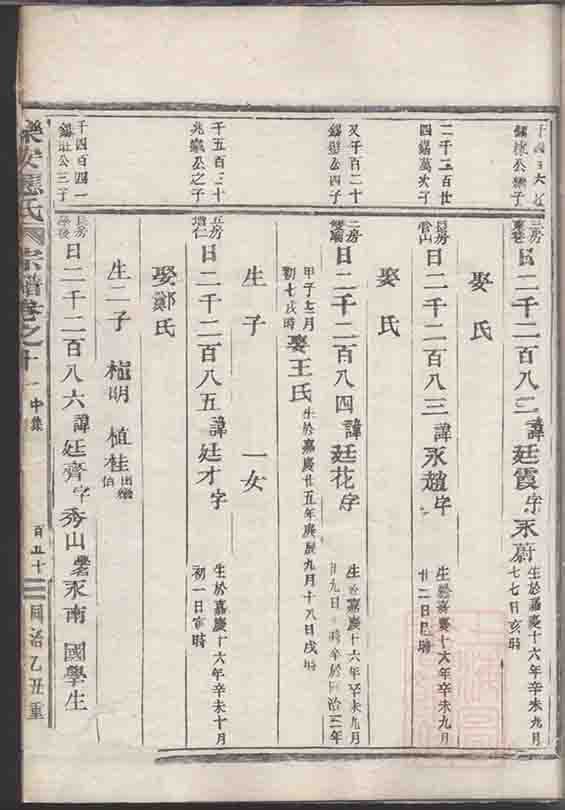 三房
日二千二百八二諱廷霞字永蔚
生於嘉慶十六年辛未九月
七七日亥時
娶氏
二千二百廿
四錫萬次子
長房
官山
日二千二百八三諱永趙字
生於嘉慶十六年辛未九月
廿二日巳時
娶氏
又千百二十
公四子
二房
日二千二百八四諱廷花字
生於嘉慶十六年辛未九月
廿九日 時卒於同治三年
甲子十二月
初七戌時
娶王氏
生於嘉慶廿五年庚辰九月十八日戌時
生子
一女
千五百三十
兆 公之子
五房
增仁
日二千二百八五諱廷才字
生於嘉慶十六年辛未十月
初一日寅時
娶鄭氏
生二子
明
植桂
出繼
伯
千四百四一
公三子
長房
學後
日二千二百八六諱廷齊字秀山號永南
國學生
樂安蔣氏宗譜卷之十一
中集
百五十二
同治乙丑重